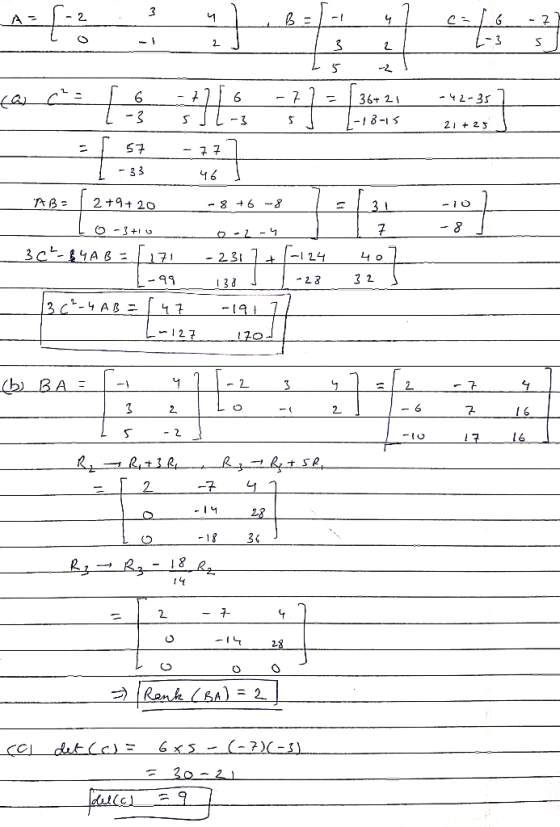 A = [ -2 3 4 ; 0 -1 2 ] , B = [ -1 4 ; 3 2 ; 5 -2 ] C = [ 6 -7 ; -3 5 ]
(a) C² = [ 6 -7 ; -3 5 ] [ 6 -7 ; -3 5 ] = [ 36+21 -42-35 ; -18-15 21+25 ]
= [ 57 -77 ; -33 46 ]
AB = [ 2+9+20 -8+6-8 ; 0-3+10 0-2-4 ] = [ 31 -10 ; 7 -8 ]
3C²-4AB = [ 171 -231 ; -99 138 ] + [ -124 40 ; -28 32 ]
3C²-4AB = [ 47 -191 ; -127 170 ]
(b) BA = [ -1 4 ; 3 2 ; 5 -2 ] [ -2 3 4 ; 0 -1 2 ] = [ 2 -7 4 ; -6 7 16 ; -10 17 16 ]
R₂ → R₁+3R₁ , R₃ → R₃+5R₁
= [ 2 -7 4 ; 0 -14 28 ; 0 -18 36 ]
R₃ → R₃ - 18/14 R₂
= [ 2 -7 4 ; 0 -14 28 ; 0 0 0 ]
⇒ Rank (BA) = 2
(c) det(c) = 6×5 - (-7)(-3)
= 30-21
det(c) = 9